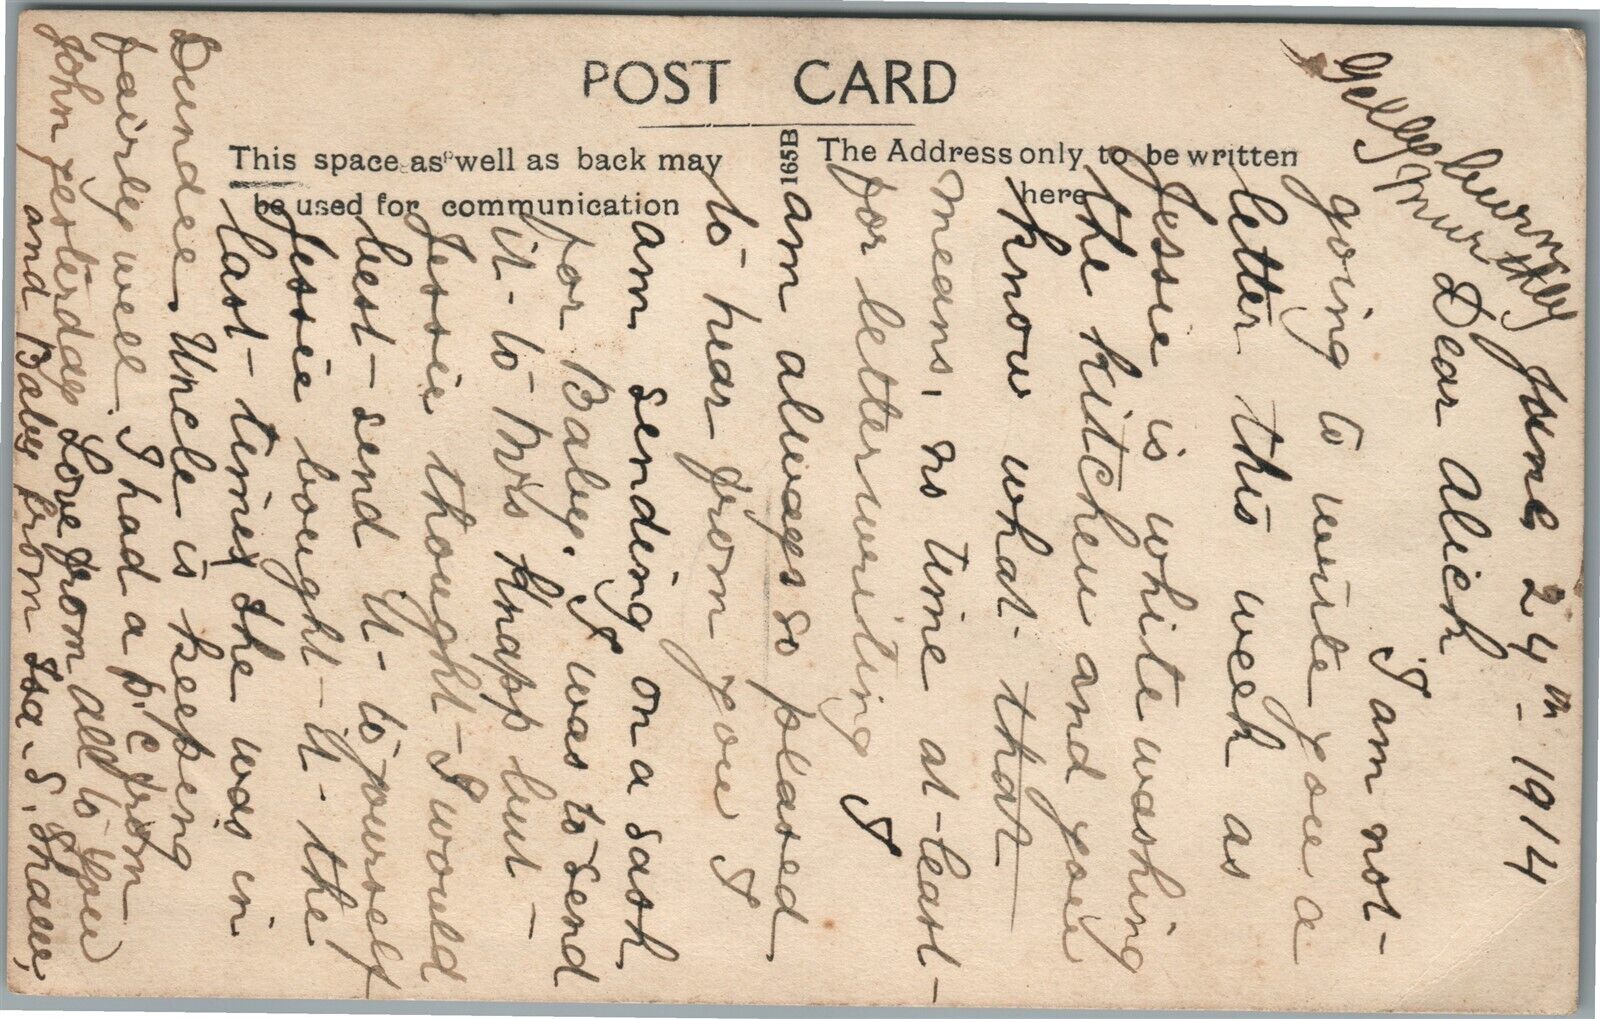 POST CARD
This space as well as back may
be used for communication
165B
The Address only to be written
here
Gelleyburn
Murthly
June 24th - 1914
Dear Alick
I am not-
going to write you a
letter this week as
Jessie is white washing
the kitchen and you
know what that
means, no time at-least-
for letter writing I
am always so pleased
to hear from you I
am sending on a sash
for Baby. I was to send
it- to Mrs Knapp but-
Jessie thought- I would
best- send it- to yourself
Jessie bought- it- the
last- time she was in
Dundee. Uncle is keeping
fairly well. I had a p.c from
John yesterday Love from all to you
and Baby from Isa. S. Shaw,